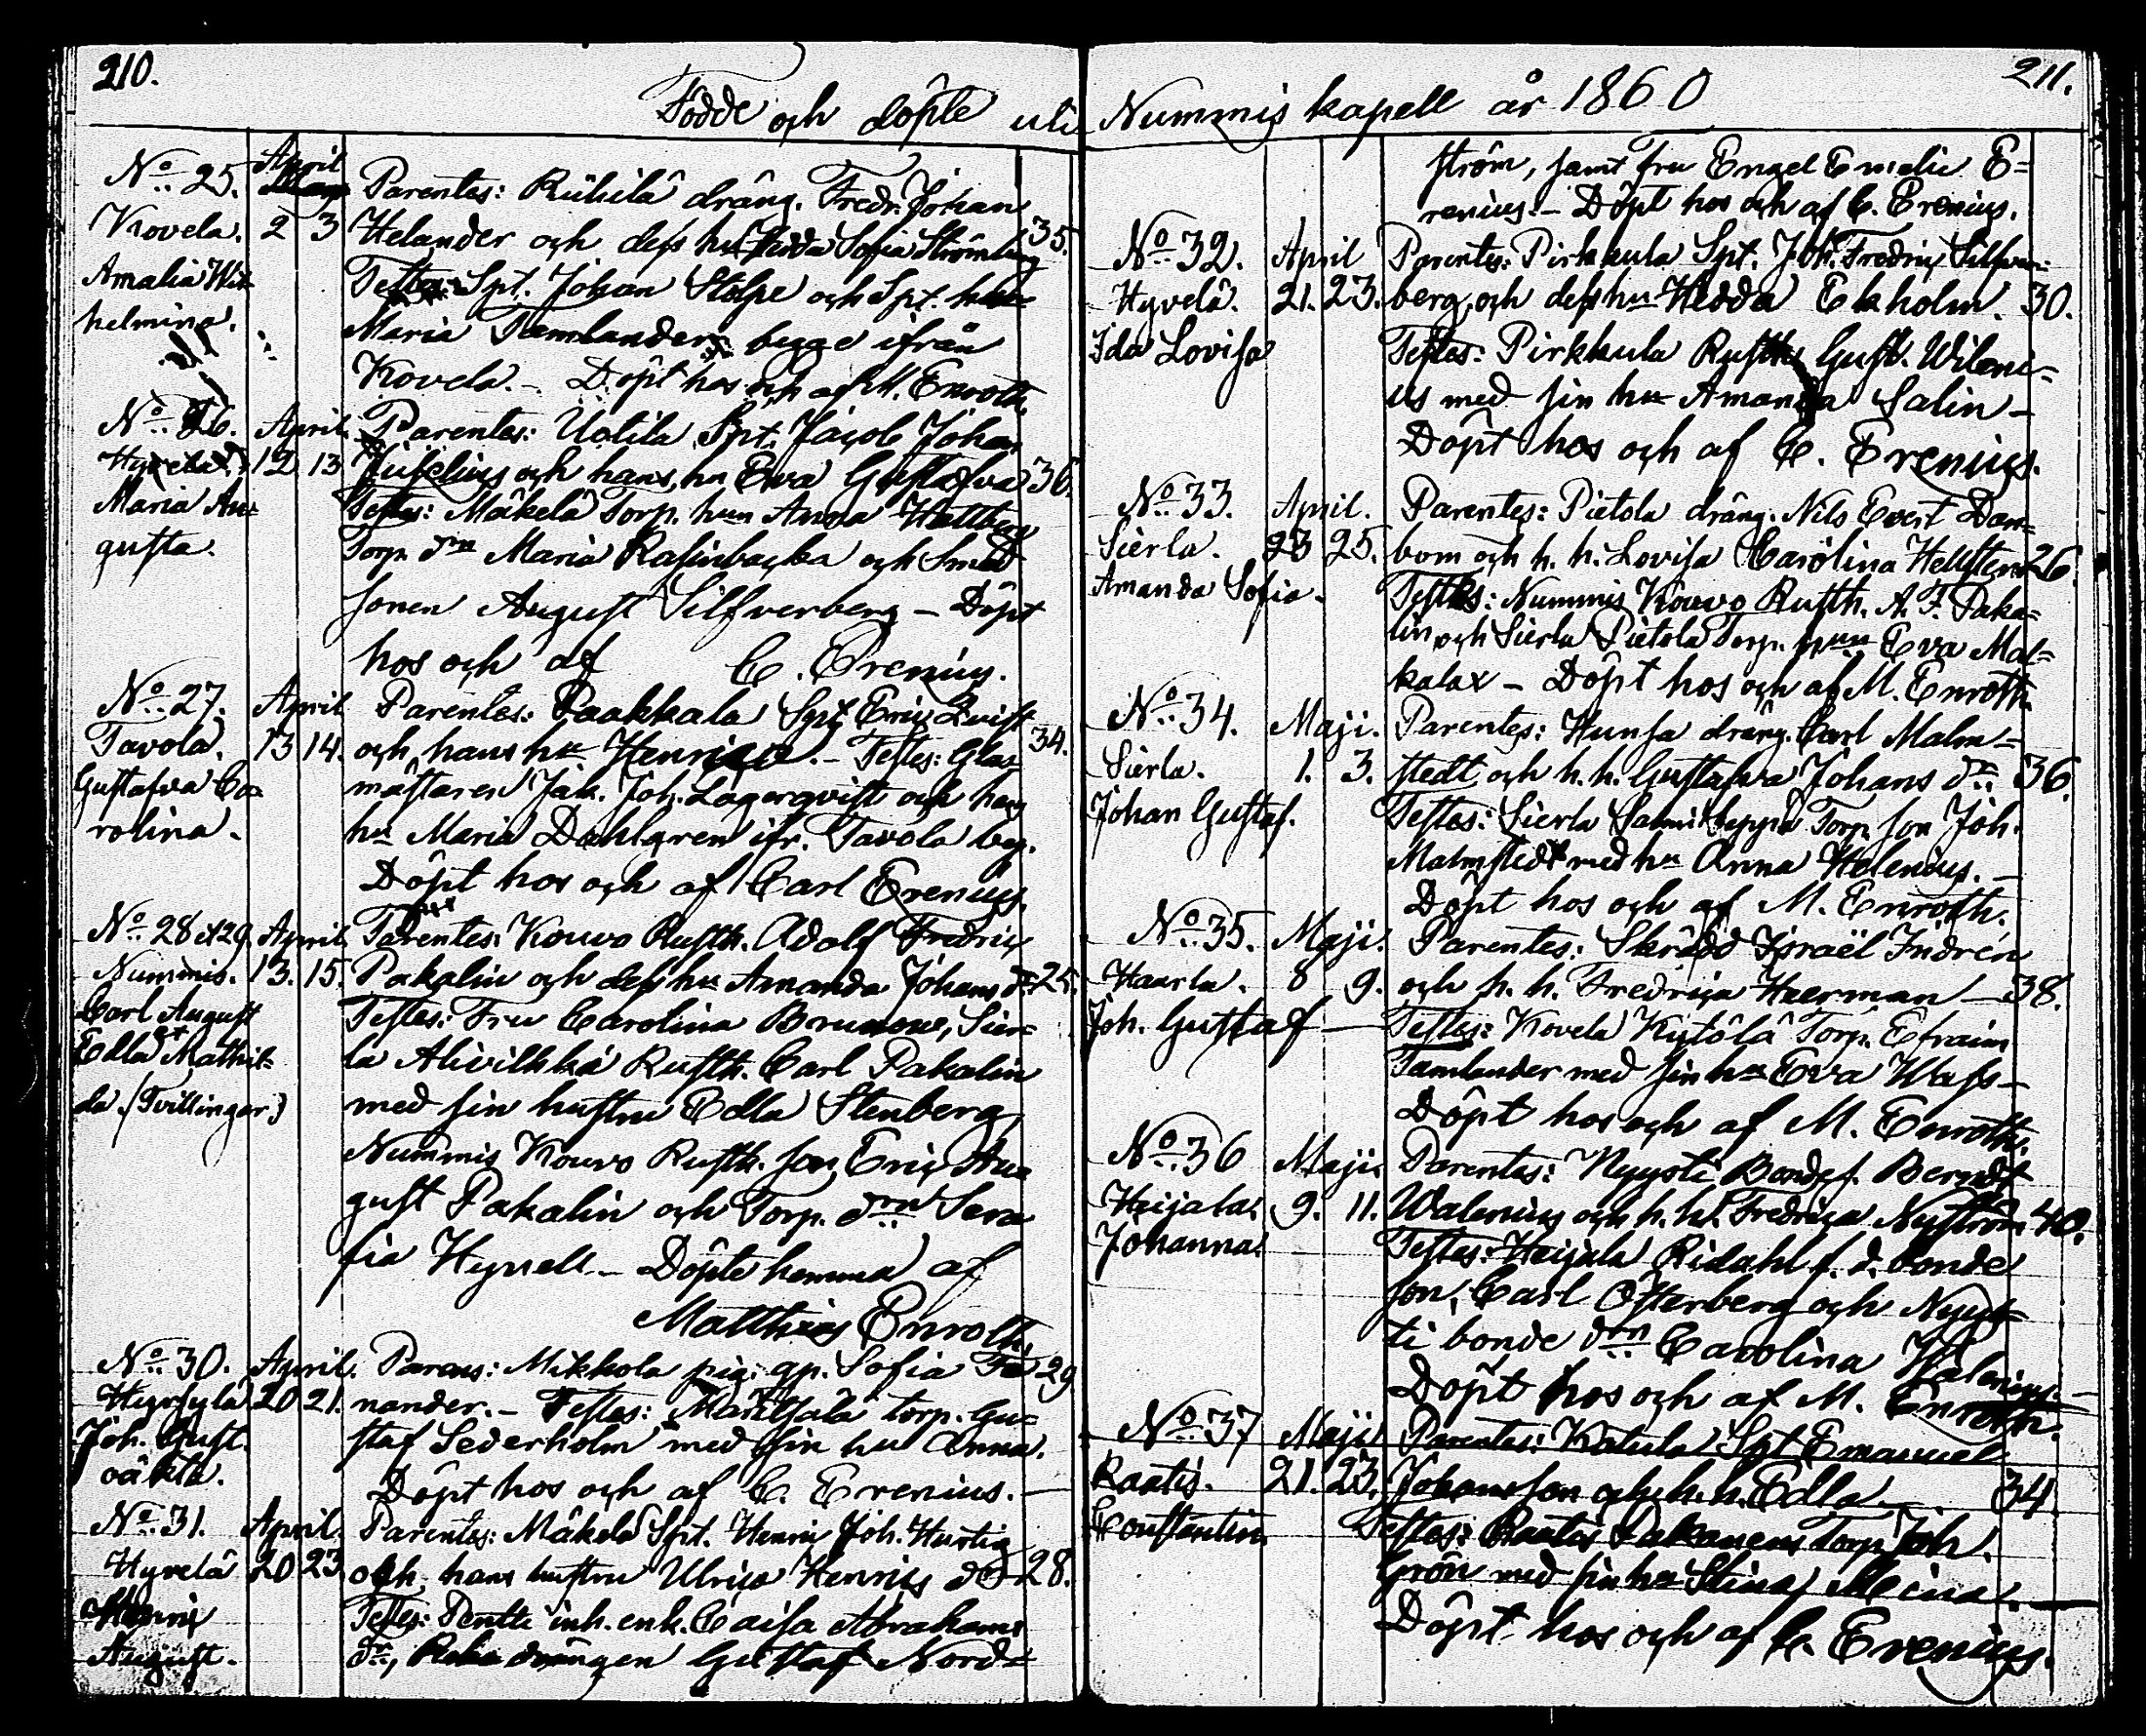 210.
Födde och döpte uti
No 25. April Parentes: Rühilä dräng. Fredr. Johan
Kovela. 2 3 Helander och dess hu Hedda Sofia Strömberg 35.
Amalia Wil- Testes: Spt. Johan Stolpe och Spt. hu
helmina. Maria Tamlander, begge ifrån
Kovela. - Döpt hos och af M. Enroth.
No 26. April. Parentes: Uotila Spt. Jacob Johan
Hyvelä. 12 13 och hans hu Eva Gustafva 36.
Maria Au- Testes: Mäkelä Torp. hun Anna Hallberg
gusta. Torp. drn Maria Rasinbacka och Smed
sonen August Silfverberg - Döpt
hos och af C. Erenius.
No 27. April Parentes: Paakkala Spt Eric Qvist
Tavola. 13 14. och hans hu Henrica. - Testes: Glas- 34.
Gustafva Ca- mästaren Jak. Joh. Lagerqvist och hans
rolina. hu Maria Dahlgren ifr. Tavola beg.
Döpt hos och af Carl Erenius.
No 28 et 29. April. Parentes: Kouvo Rusth. Adolf Fredric
Nummis. 13. 15. Pakalin och dess hu Amanda Johans dr 25.
Carl August Testes: Fru Carolina Brunow, Sier-
et Edla Mathil- la Alivilkkä Rusth. Carl Pakalin
da. (Tvillingar) med sin hustru Edla Stenberg,
Nummis Kouvo Rusth. son Eric Au-
gust Pakalin och Torp. drn Sera
fia Hyrsell - Döpte hemma af
Matthias Enroth.
No 30. April. Parens: Mikkola pig. qp. Sofia Fä- 29
Hyrsylä 20 21. nander. - Testes: torp. Gu-
Joh. Gust. staf Sederholm med sin hu Anna.
oäkta. Döpt hos och af C. Erenius. -
No 31. April. Parentes: Mäkelä Spt. Henric Joh. Hurtig
Hyvelä 20 23. och hans hustru Ulrica Henrics dr 28.
Henric Testes: Pentti inh. enk. Caisa Abrahams
August. dr, drängen Gustaf Nord-
211.
Nummis kapell år 1860
ström, samt fru Engel Emelie E-
renius. - Döpt hos och af C. Erenius.
No 32. April Parentes: Pirkkula Spt. Joh. Fredric Silfver-
Hyvelä. 21. 23. berg, och dess hu Hedda Ekholm. 30.
Ida Lovisa Testes: Pirkkula Rusth. Gust. Wileni-
us med sin hu Amanda Salin -
Döpt hos och af C. Erenius.
No 33. April. Parentes: Pietola dräng. Nils Evert Dan-
Sierla. 23 25. bom och h. h. Lovisa Carolina Hellsten 26.
Amanda Sofia. Testes: Nummis Kouvo Rusth. A. F. Paka-
lin och Sierla Pietola Torp. hun Eva Mal-
kalax - Döpt hos och af M. Enroth.
No 34. Maji. Parentes: Hunsa dräng. Carl Malm-
Sierla. 1. 3. stedt och h. h. Gustafva Johans dr 36.
Johan Gustaf. Testes: Sierla Torp. son Joh.
Malmstedt med hu Anna Helenius. -
Döpt hos och af M. Enroth.
No 35. Maji. Parentes: Skrädd Israël Indrén
Haarla. 8 9. och h. h. Fredrica Heerman - 38.
Joh. Gustaf - Testes: Kovela Kytölä Torp. Efraim
Tamlander med sin hu Eva Wass -
Döpt hos och af M. Enroth.
No 36 Maji. Parentes: Nyysti Bondes. Berndt
Heijala. 9. 11. Walenius och h. h. Fredrica Nyström 40.
Johanna. Testes: Heijala Ridahl f. d. bonde
son Carl Österberg och Nyys-
ti bonde drn Carolina Walenius -
Döpt hos och af M. Enroth.
No 37 Maji Parentes: Katula Spt Emanuel
Raatis. 21. 23. Johansson och h. h. Edla - 34
Constantin Testes: Raatis Pakanens Torp. Joh.
Grön med sin hu Stina
Döpt hos och af C. Erenius.